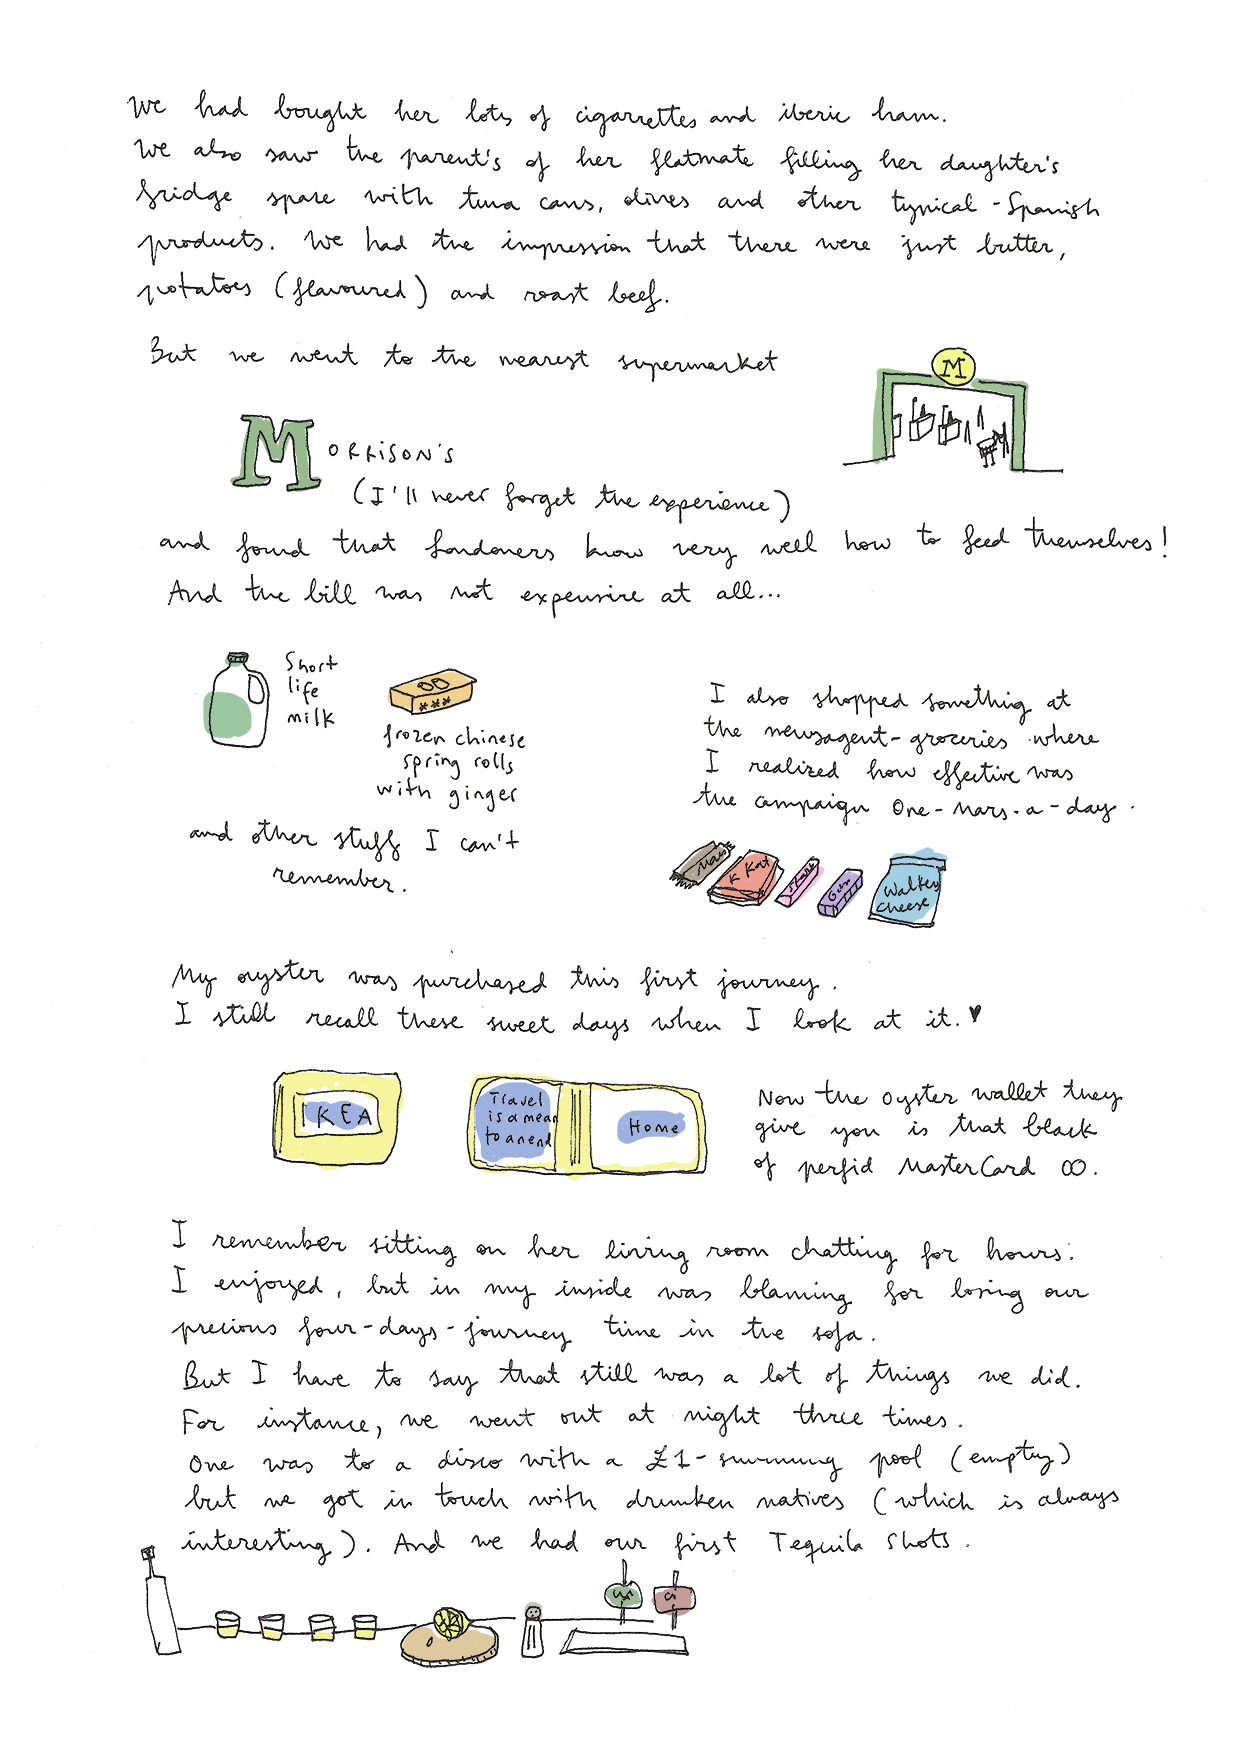 We had bought her lots of cigarrettes and iberic ham.
We also saw the parent's of her flatmate filling her daughter's
fridge space with tuna cans, olives and other typical-Spanish
products. We had the impression that there were just butter,
potatoes (flavoured) and roast beef.
But we went to the nearest supermarket
M
MORRISON'S
(I'll never forget the experience)
and found that Londoners know very well how to feed themselves!
And the bill was not expensive at all...
Short
life
milk
frozen chinese
spring rolls
with ginger
and other stuff I can't
remember.
I also shopped something at
the newsagent-groceries where
I realized how effective was
the campaign One-Mars-a-day.
Mars
K Kat
Walkers
cheese
My oyster was purchased this first journey.
I still recall these sweet days when I look at it.♥
IKEA
Travel
is a mean
to an end
Home
Now the oyster wallet they
give you is that black
of perfid MasterCard ∞.
I remember sitting on her living room chatting for hours.
I enjoyed, but in my inside was blaming for losing our
precious four-days-journey time in the sofa.
But I have to say that still was a lot of things we did.
For instance, we went out at night three times.
One was to a disco with a £1-swimming pool (empty)
but we got in touch with drunken natives (which is always
interesting). And we had our first Tequila Shots.